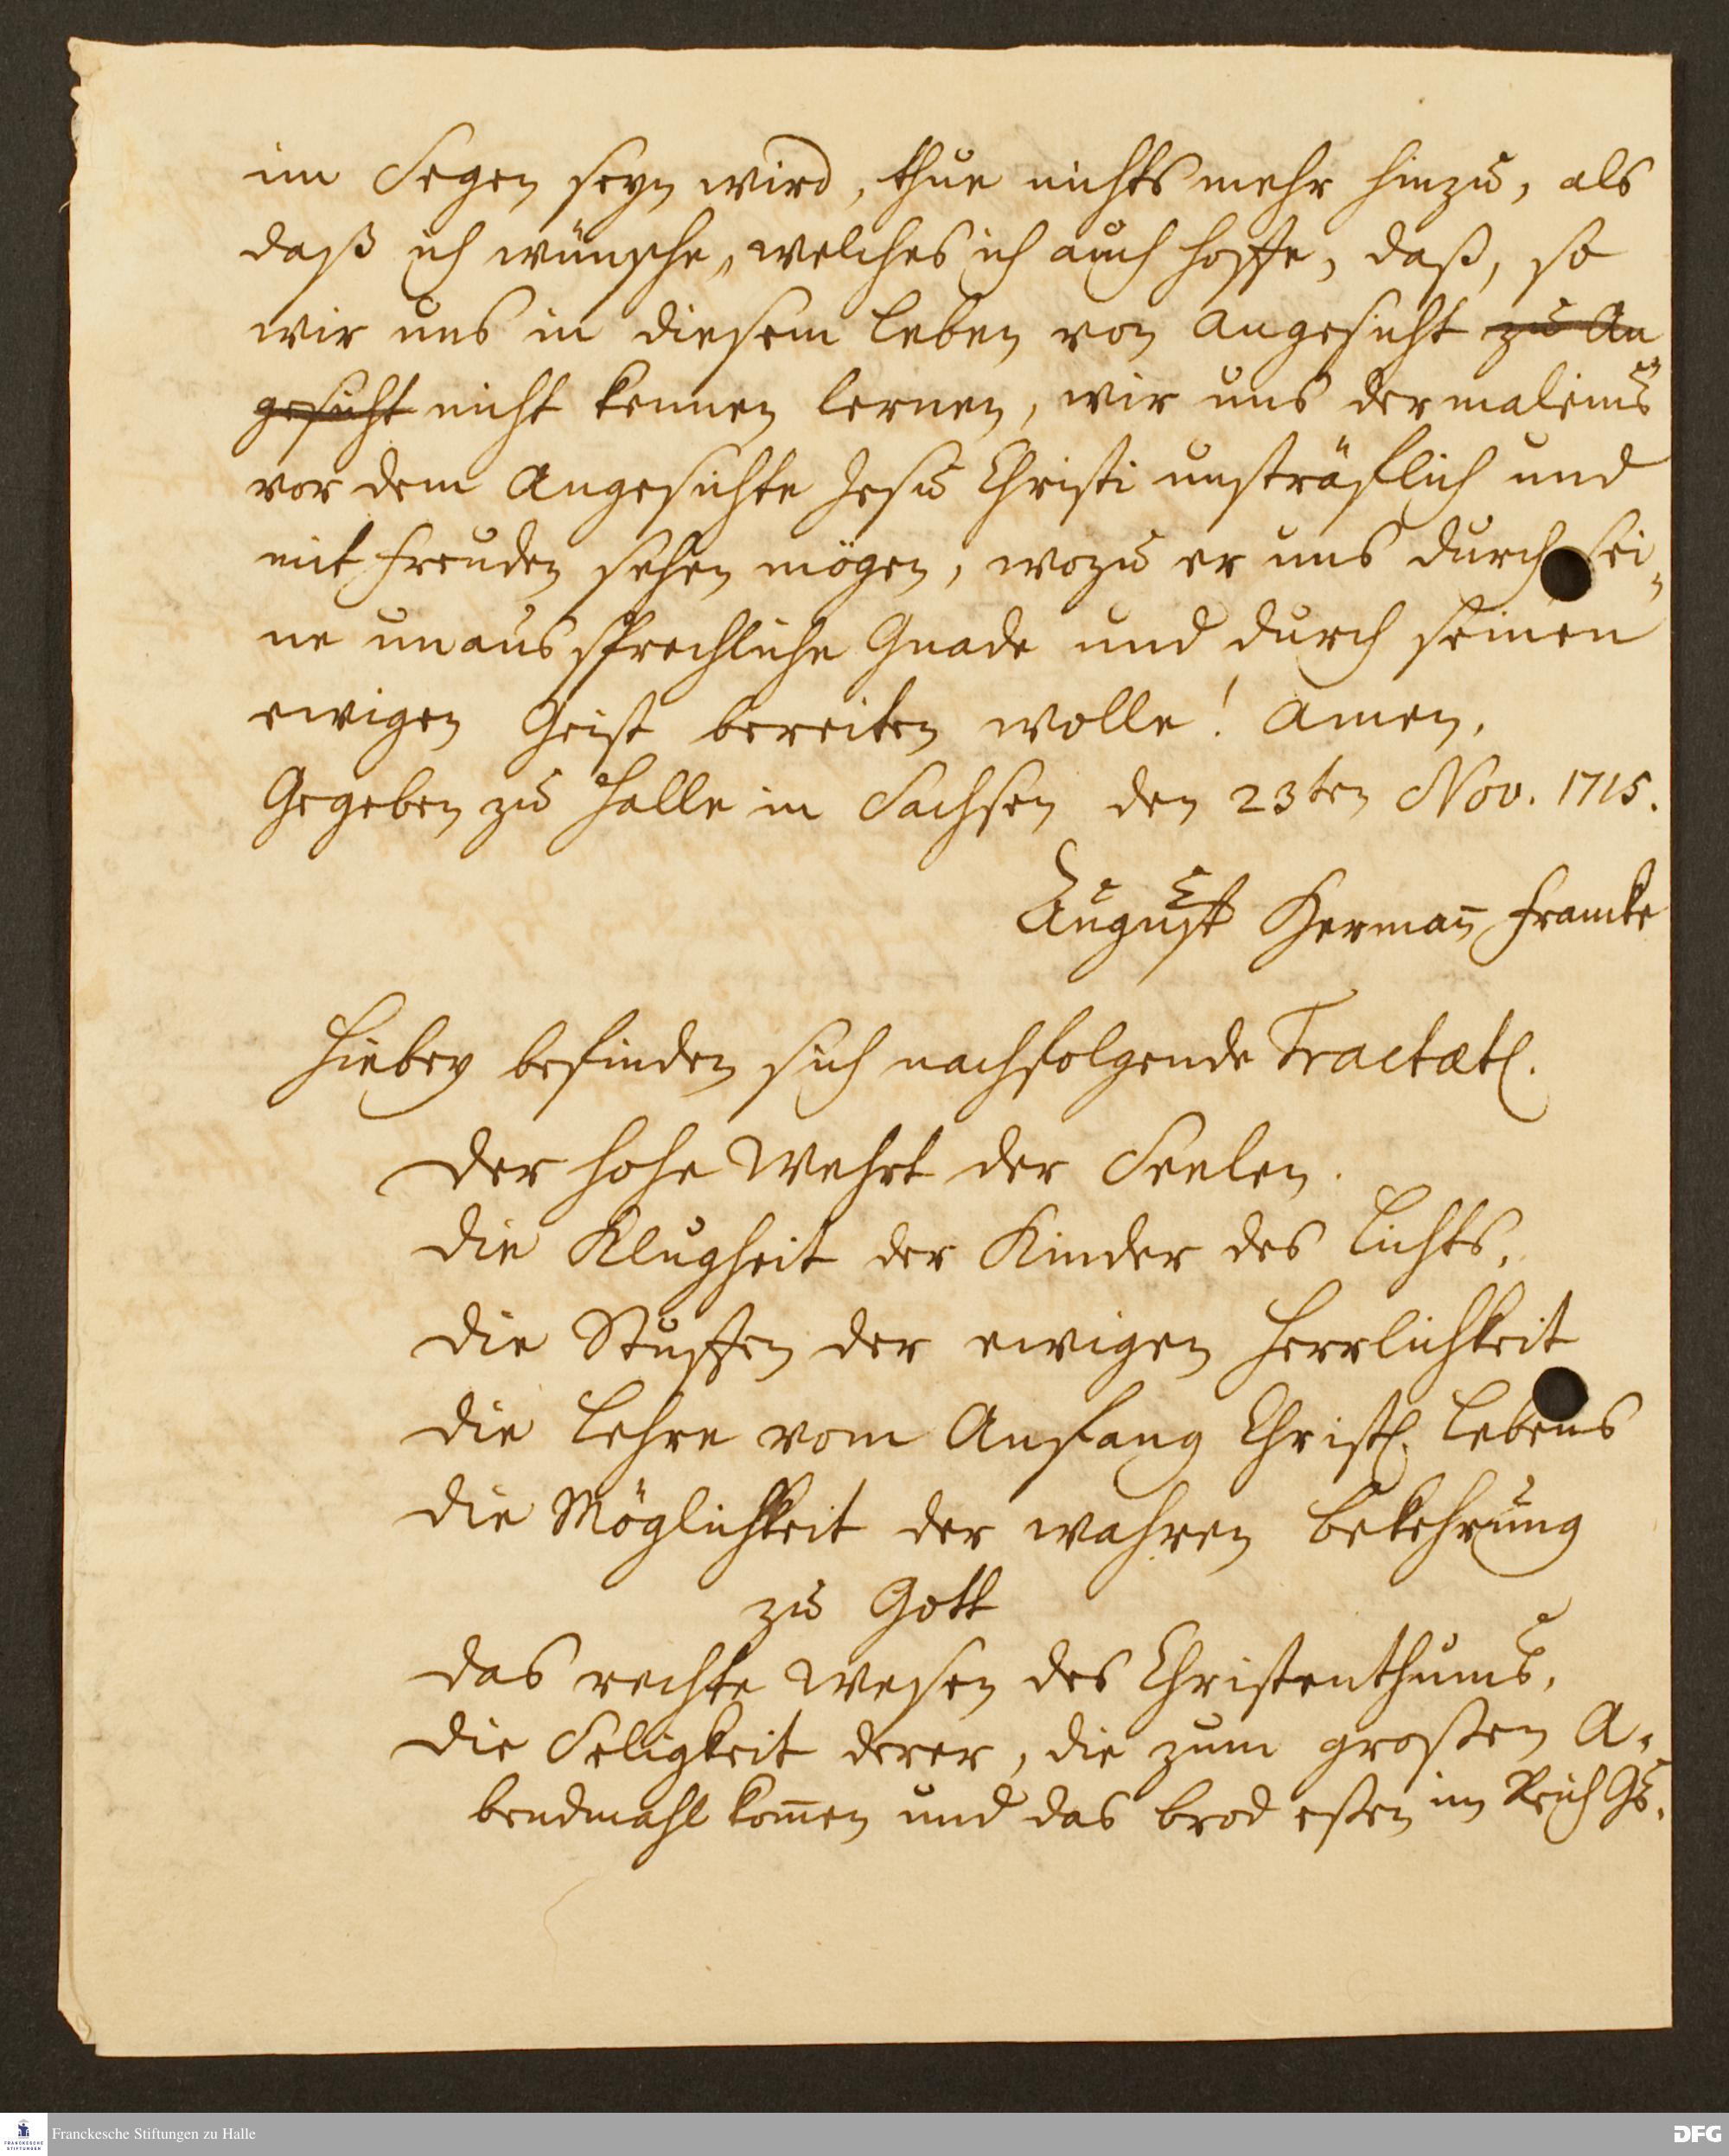 im Segen seyn wird, thue nichts mehr hinzu, als
daß ich wünsche, welches ich auch hoffe, daß, so
wir uns in diesem leben von angesicht zu An
gesicht nicht kennen lernen, wir uns dermaleins
vor dem Angesichte Jesu Christi unsträflich und
mit freuden sehen mögen, wozu er uns durch sei„
ne unaussprechliche Gnade und durch seinen
ewigen Geist bereiten wolle! Amen.
Gegeben zu Halle in Sachsen den 23ten Nov. 1715.
August Herman̄ Francke
Hiebey befinden sich nachfolgende Tractätl.
Der hohe Wehrt der Seelen.
Die Klugheit der Kinder des Lichts.
Die Stuffen der ewigen Herrlichkeit
Die Lehre vom Anfang Christl. Lebens
Die Möglichkeit der wahren bekehrung
zu Gott
Das rechte Wesen des Christenthums.
Die Seligkeit derer, die zum großen A„
bendmahl kom̄en und das brod eßen im Reich Gs.
Franckesche Stiftungen zu Halle
FRANCKESCHE
STIFTUNGEN
DFG